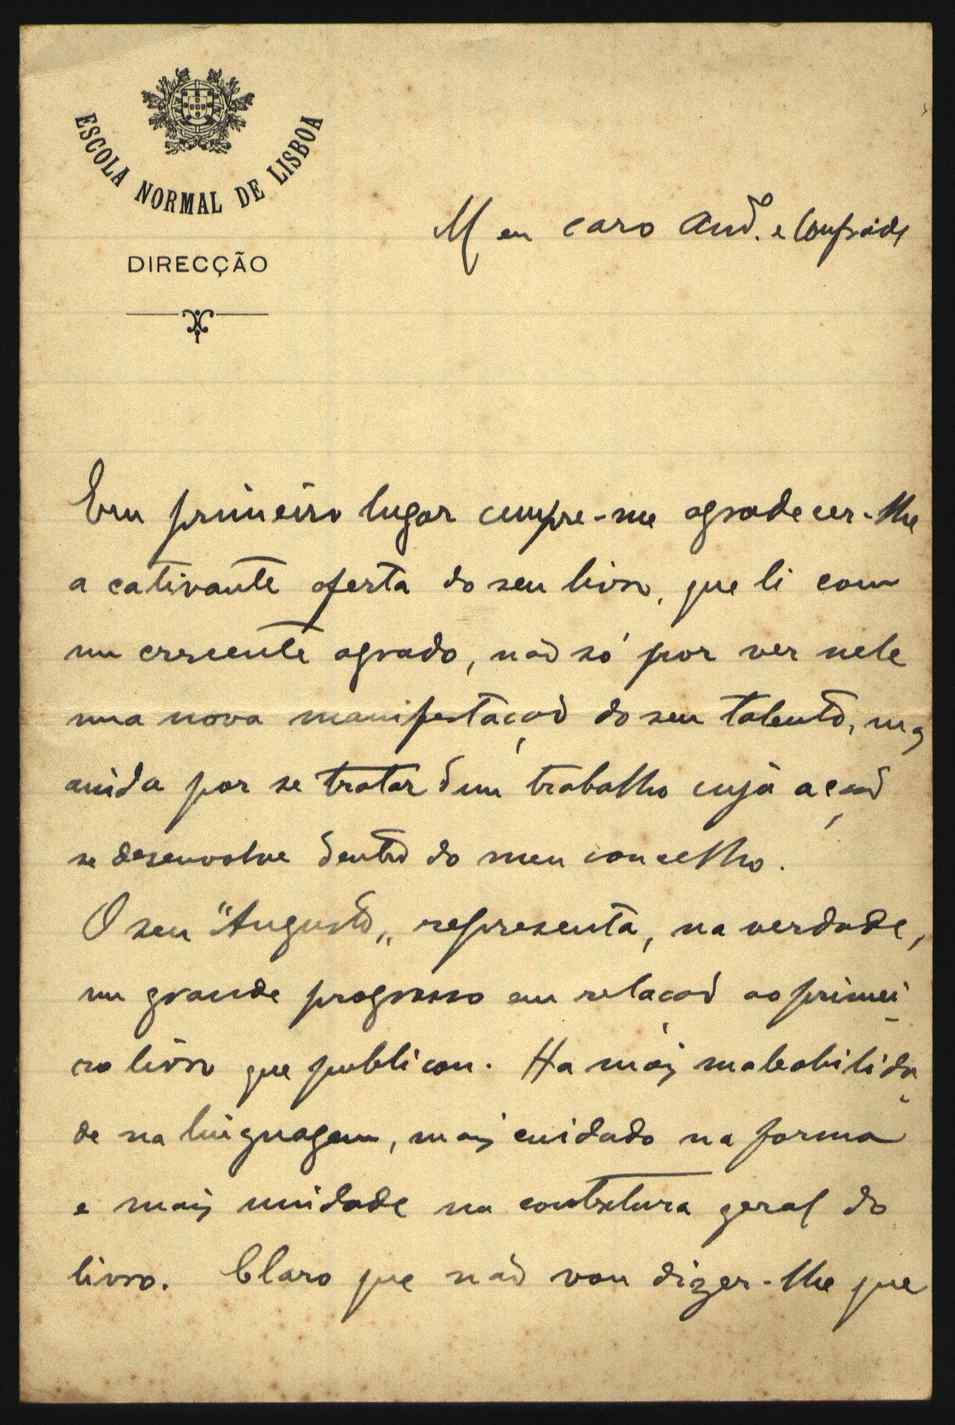 ESCOLA NORMAL DE LISBOA
DIRECÇÃO
Meu caro Am.º e Confrade
Em primeiro lugar cumpre-me agradecer-lhe
a cativante oferta do seu livro, que li com
um crescente agrado, não só por ver nele
uma nova manifestação do seu talento, mas
ainda por se tratar dum trabalho cuja ação
se desenvolve dentro do meu concelho.
O seu "Augusto„ representa, na verdade,
um grande progresso em relação ao primei-
ro livro que publicou. Ha mais maleabilida-
de na linguagem, mais cuidado na forma
e mais unidade na contextura geral do
livro. Claro que não vou dizer-lhe que